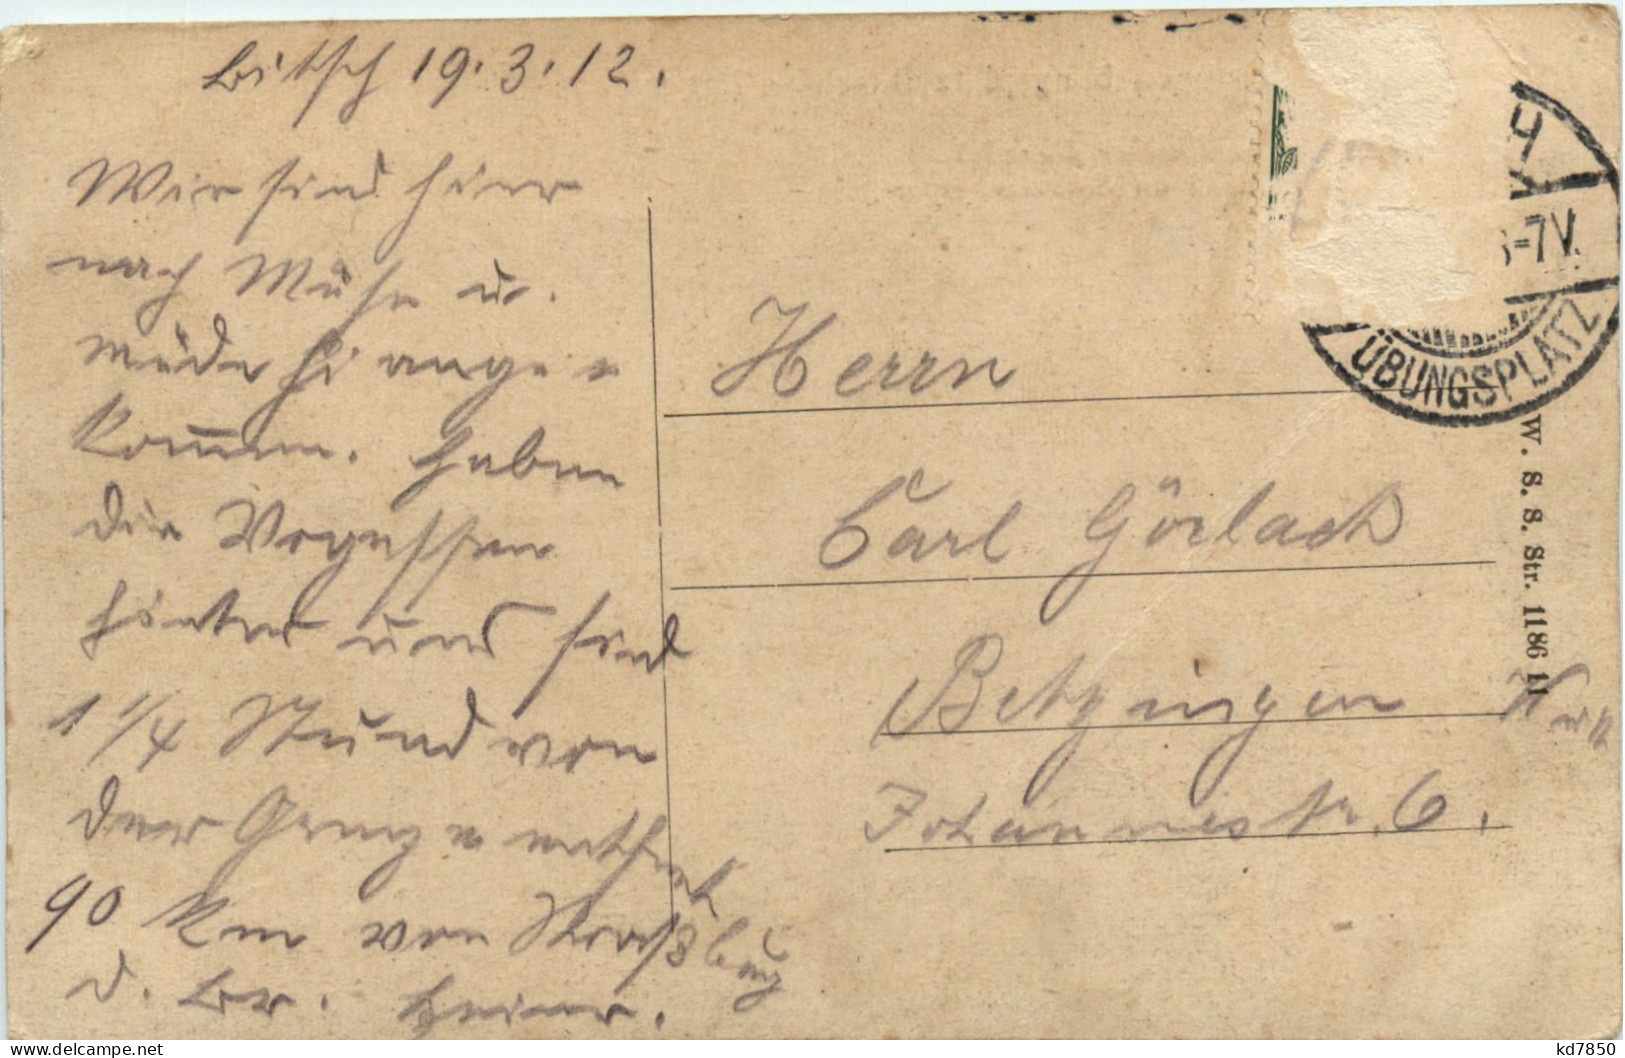 Bitsch 19.3.12.
Wir sind hier
nach Mühe u.
müde hi ange=
kommen. Haben
die Vogesen
hinter uns sind
1 1/4 Stund von
der Grenze entfernt
90 Km von Straßburg
d. Br. Heiner.
Herrn
Carl Görlach
Betzingen
Johannesstr. 6.
H
6-7V.
ÜBUNGSPLATZ
W. S. S. Str. 1186 11
kd7850